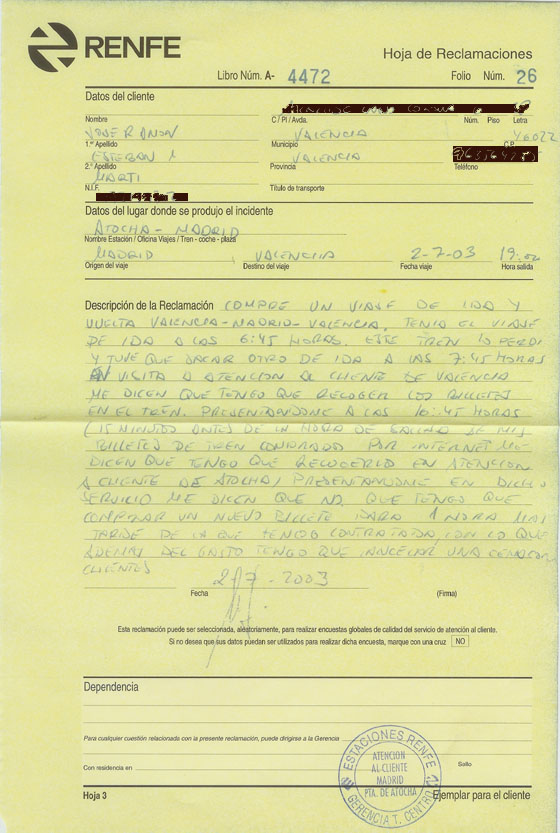 RENFE
Hoja de Reclamaciones
Libro Núm. A- 4472 Folio Núm. 26
Datos del cliente
Nombre C / Pl / Avda. Núm. Piso Letra
JOSE RAMON VALENCIA 46022
1.er Apellido Municipio C.P.
ESTEBAN VALENCIA
2.º Apellido Provincia Teléfono
MARTI
N.I.F. Título de transporte
Datos del lugar donde se produjo el incidente
ATOCHA - MADRID
Nombre Estación / Oficina Viajes / Tren - coche - plaza
MADRID VALENCIA 2-7-03 19:00
Origen del viaje Destino del viaje Fecha viaje Hora salida
Descripción de la Reclamación COMPRE UN VIAJE DE IDA Y
VUELTA VALENCIA-MADRID-VALENCIA. TENIA EL VIAJE
DE IDA A LAS 6:45 HORAS. ESTE TREN LO PERDI
Y TUVE QUE SACAR OTRO DE IDA A LAS 7:45 HORAS
EN VISITA A ATENCION AL CLIENTE DE VALENCIA
ME DICEN QUE TENGO QUE RECOGER LOS BILLETES
EN EL TREN. PRESENTANDOME A LAS :45 HORAS
(15 MINUTOS ANTES DE LA HORA DE SALIDA DE MIS
BILLETES DE TREN COMPRADOS POR INTERNET ME
DICEN QUE TENGO QUE RECOGERLO EN ATENCION
A CLIENTE DE ATOCHA, PRESENTANDOME EN DICHO
SERVICIO ME DICEN QUE NO, QUE TENGO QUE
COMPRAR UN NUEVO BILLETE PARA 1 HORA MAS
TARDE DE LA QUE TENGO CONTRATADA, CON LO QUE
ADEMAS DEL GASTO TENGO QUE CANCELAR UNA CENA CON
CLIENTES
2-7-2003
Fecha (Firma)
Esta reclamación puede ser seleccionada, aleatoriamente, para realizar encuestas globales de calidad del servicio de atención al cliente.
Si no desea que sus datos puedan ser utilizados para realizar dicha encuesta, marque con una cruz NO
Dependencia
Para cualquier cuestión relacionada con la presente reclamación, puede dirigirse a la Gerencia
Con residencia en Sello
ESTACIONES RENFE
ATENCION
AL CLIENTE
MADRID
PTA. DE ATOCHA
GERENCIA T. CENTRO
Hoja 3 Ejemplar para el cliente